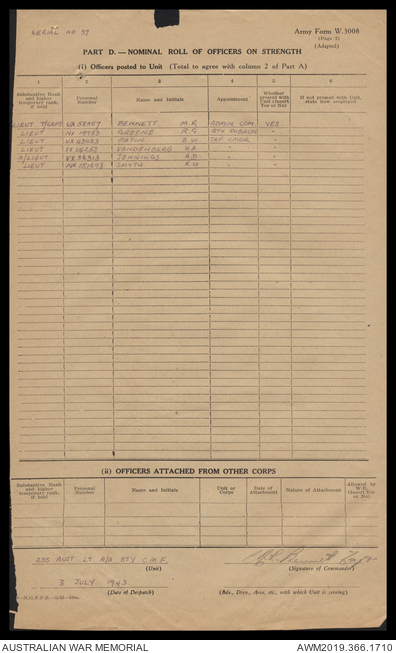 SERIAL NO 37
Army Form W.3008
(Page 2)
(Adapted)
PART D.—NOMINAL ROLL OF OFFICERS ON STRENGTH
(i) Officers posted to Unit (Total to agree with column 2 of Part A)
1 2 3 4 5 6
Substantive Rank and higher temporary rank, if held
Personal Number
Name and Initials
Appointment
Whether present with Unit (Insert Yes or No)
If not present with Unit, state how employed
LIEUT T/CAPT BENNETT M R ADMIN COM YES
LIEUT GREENE R G "
LIEUT "
LIEUT VANDENBERG H.A. " "
A/LIEUT JENNINGS " "
LIEUT SMYTH R W " "
(ii) OFFICERS ATTACHED FROM OTHER CORPS
Substantive Rank and higher temporary rank, if held
Personal Number
Name and Initials
Unit or Corps
Date of Attachment
Nature of Attachment
Allowed by W.E. (Insert Yes or No)
235 AUST LT A/A BTY C.M.F.
(Unit)
(Signature of Commander)
3 JULY 1943
(Date of Despatch)
(Bde., Divn., Area, etc., with which Unit is serving)
AUSTRALIAN WAR MEMORIAL
AWM2019.366.1710